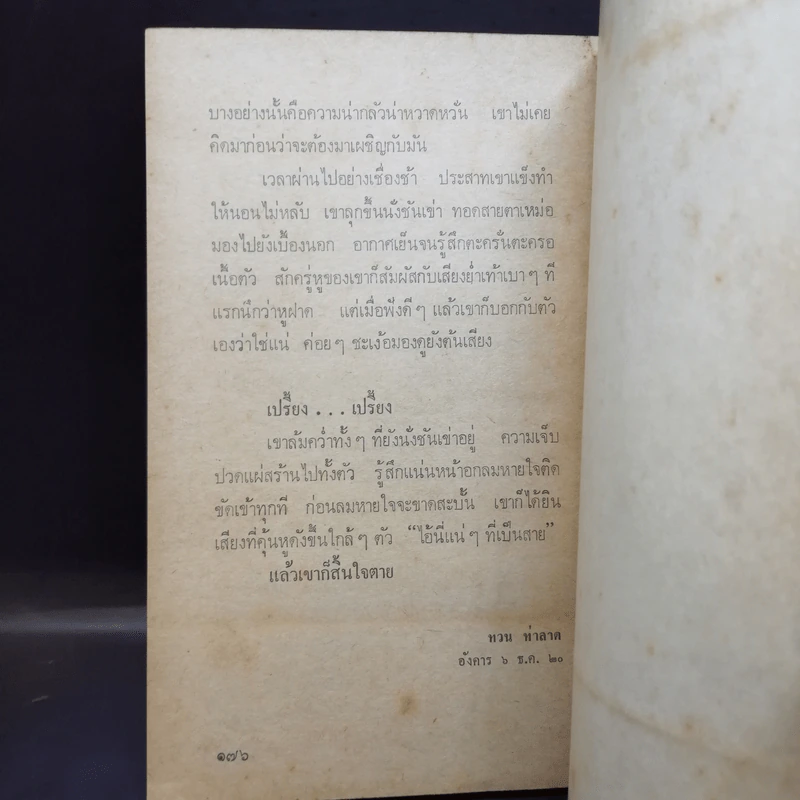 บางอย่างนั้นคือความน่ากลัวน่าหวาดหวั่น เขาไม่เคย
คิดมาก่อนว่าจะต้องมาเผชิญกับมัน
เวลาผ่านไปอย่างเชื่องช้า ประสาทเขาแข็งทำ
ให้นอนไม่หลับ เขาลุกขึ้นนั่งชันเข่า ทอดสายตาเหม่อ
มองไปยังเบื้องนอก อากาศเย็นจนรู้สึกตะครั่นตะครอ
เนื้อตัว สักครู่หูของเขาก็สัมผัสกับเสียงย่ำเท้าเบาๆ ที
แรกนึกว่าหูฝาด แต่เมื่อฟังดีๆ แล้วเขาก็บอกกับตัว
เองว่าใช่แน่ ค่อยๆ ชะเง้อมองดูยังต้นเสียง
เปรี้ยง . . . เปรี้ยง
เขาล้มคว่ำทั้งๆ ที่ยังนั่งชันเข่าอยู่ ความเจ็บ
ปวดแผ่สร้านไปทั้งตัว รู้สึกแน่นหน้าอกลมหายใจติด
ขัดเข้าทุกที ก่อนลมหายใจจะขาดสะบั้น เขาก็ได้ยิน
เสียงที่คุ้นหูดังขึ้นใกล้ๆ ตัว “ไอ้นี่แน่ๆ ที่เป็นสาย”
แล้วเขาก็สิ้นใจตาย
ทวน ท่าลาด
อังคาร ๖ ธ.ค. ๒๐
๑๗๖